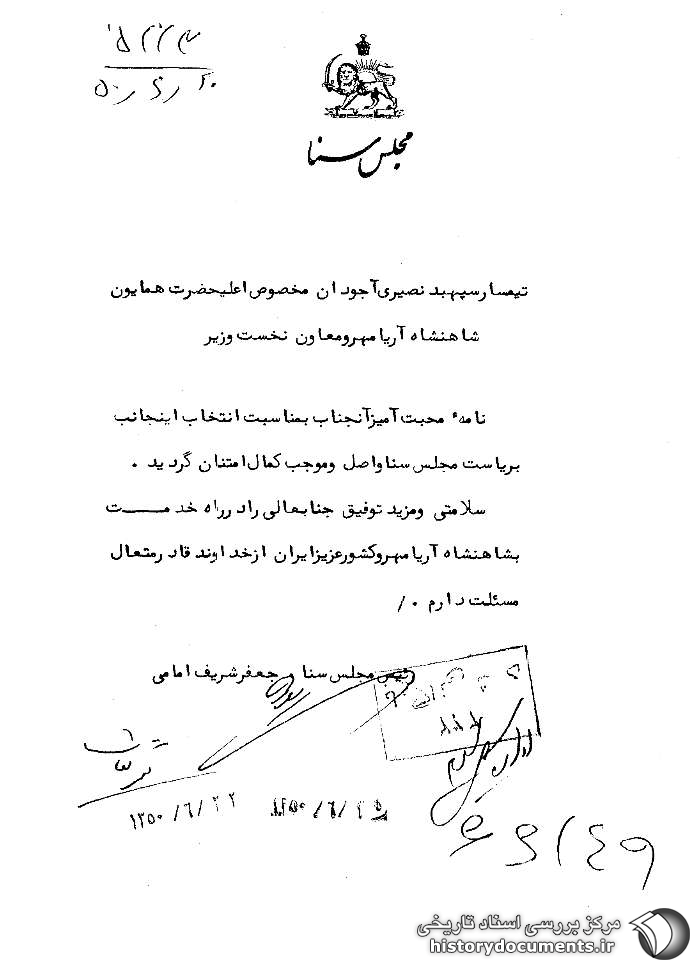 مجلس سنا
تیمسار سپهبد نصیری آجودان مخصوص اعلیحضرت همایون
شاهنشاه آریا مهر و معاون نخست وزیر
نامهٔ محبت آمیز آنجناب بمناسبت انتخاب اینجانب
بریاست مجلس سنا واصل و موجب کمال امتنان گردید .
سلامتی و مزید توفیق جنابعالی را در راه خدمت
بشاهنشاه آریا مهر و کشور عزیز ایران از خداوند قادر متعال
مسئلت دارم ٠/
رئیس مجلس سنا - جعفر شریف امامی
۱۳۵۰/۶/۲۲
مرکز بررسی اسناد تاریخی
historydocuments.ir